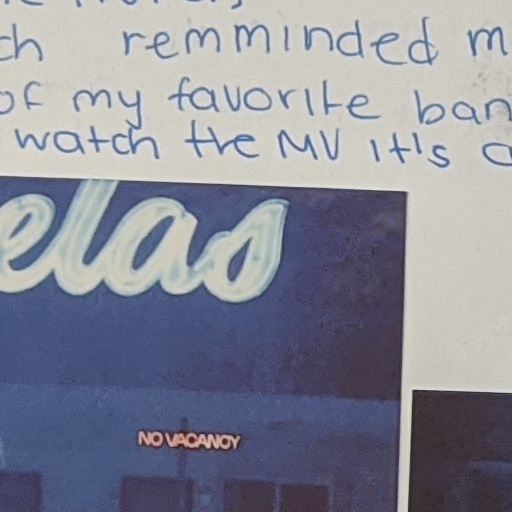 ch remminded m
of my favorite ban
watch the MV it's a
elas
NO VACANCY